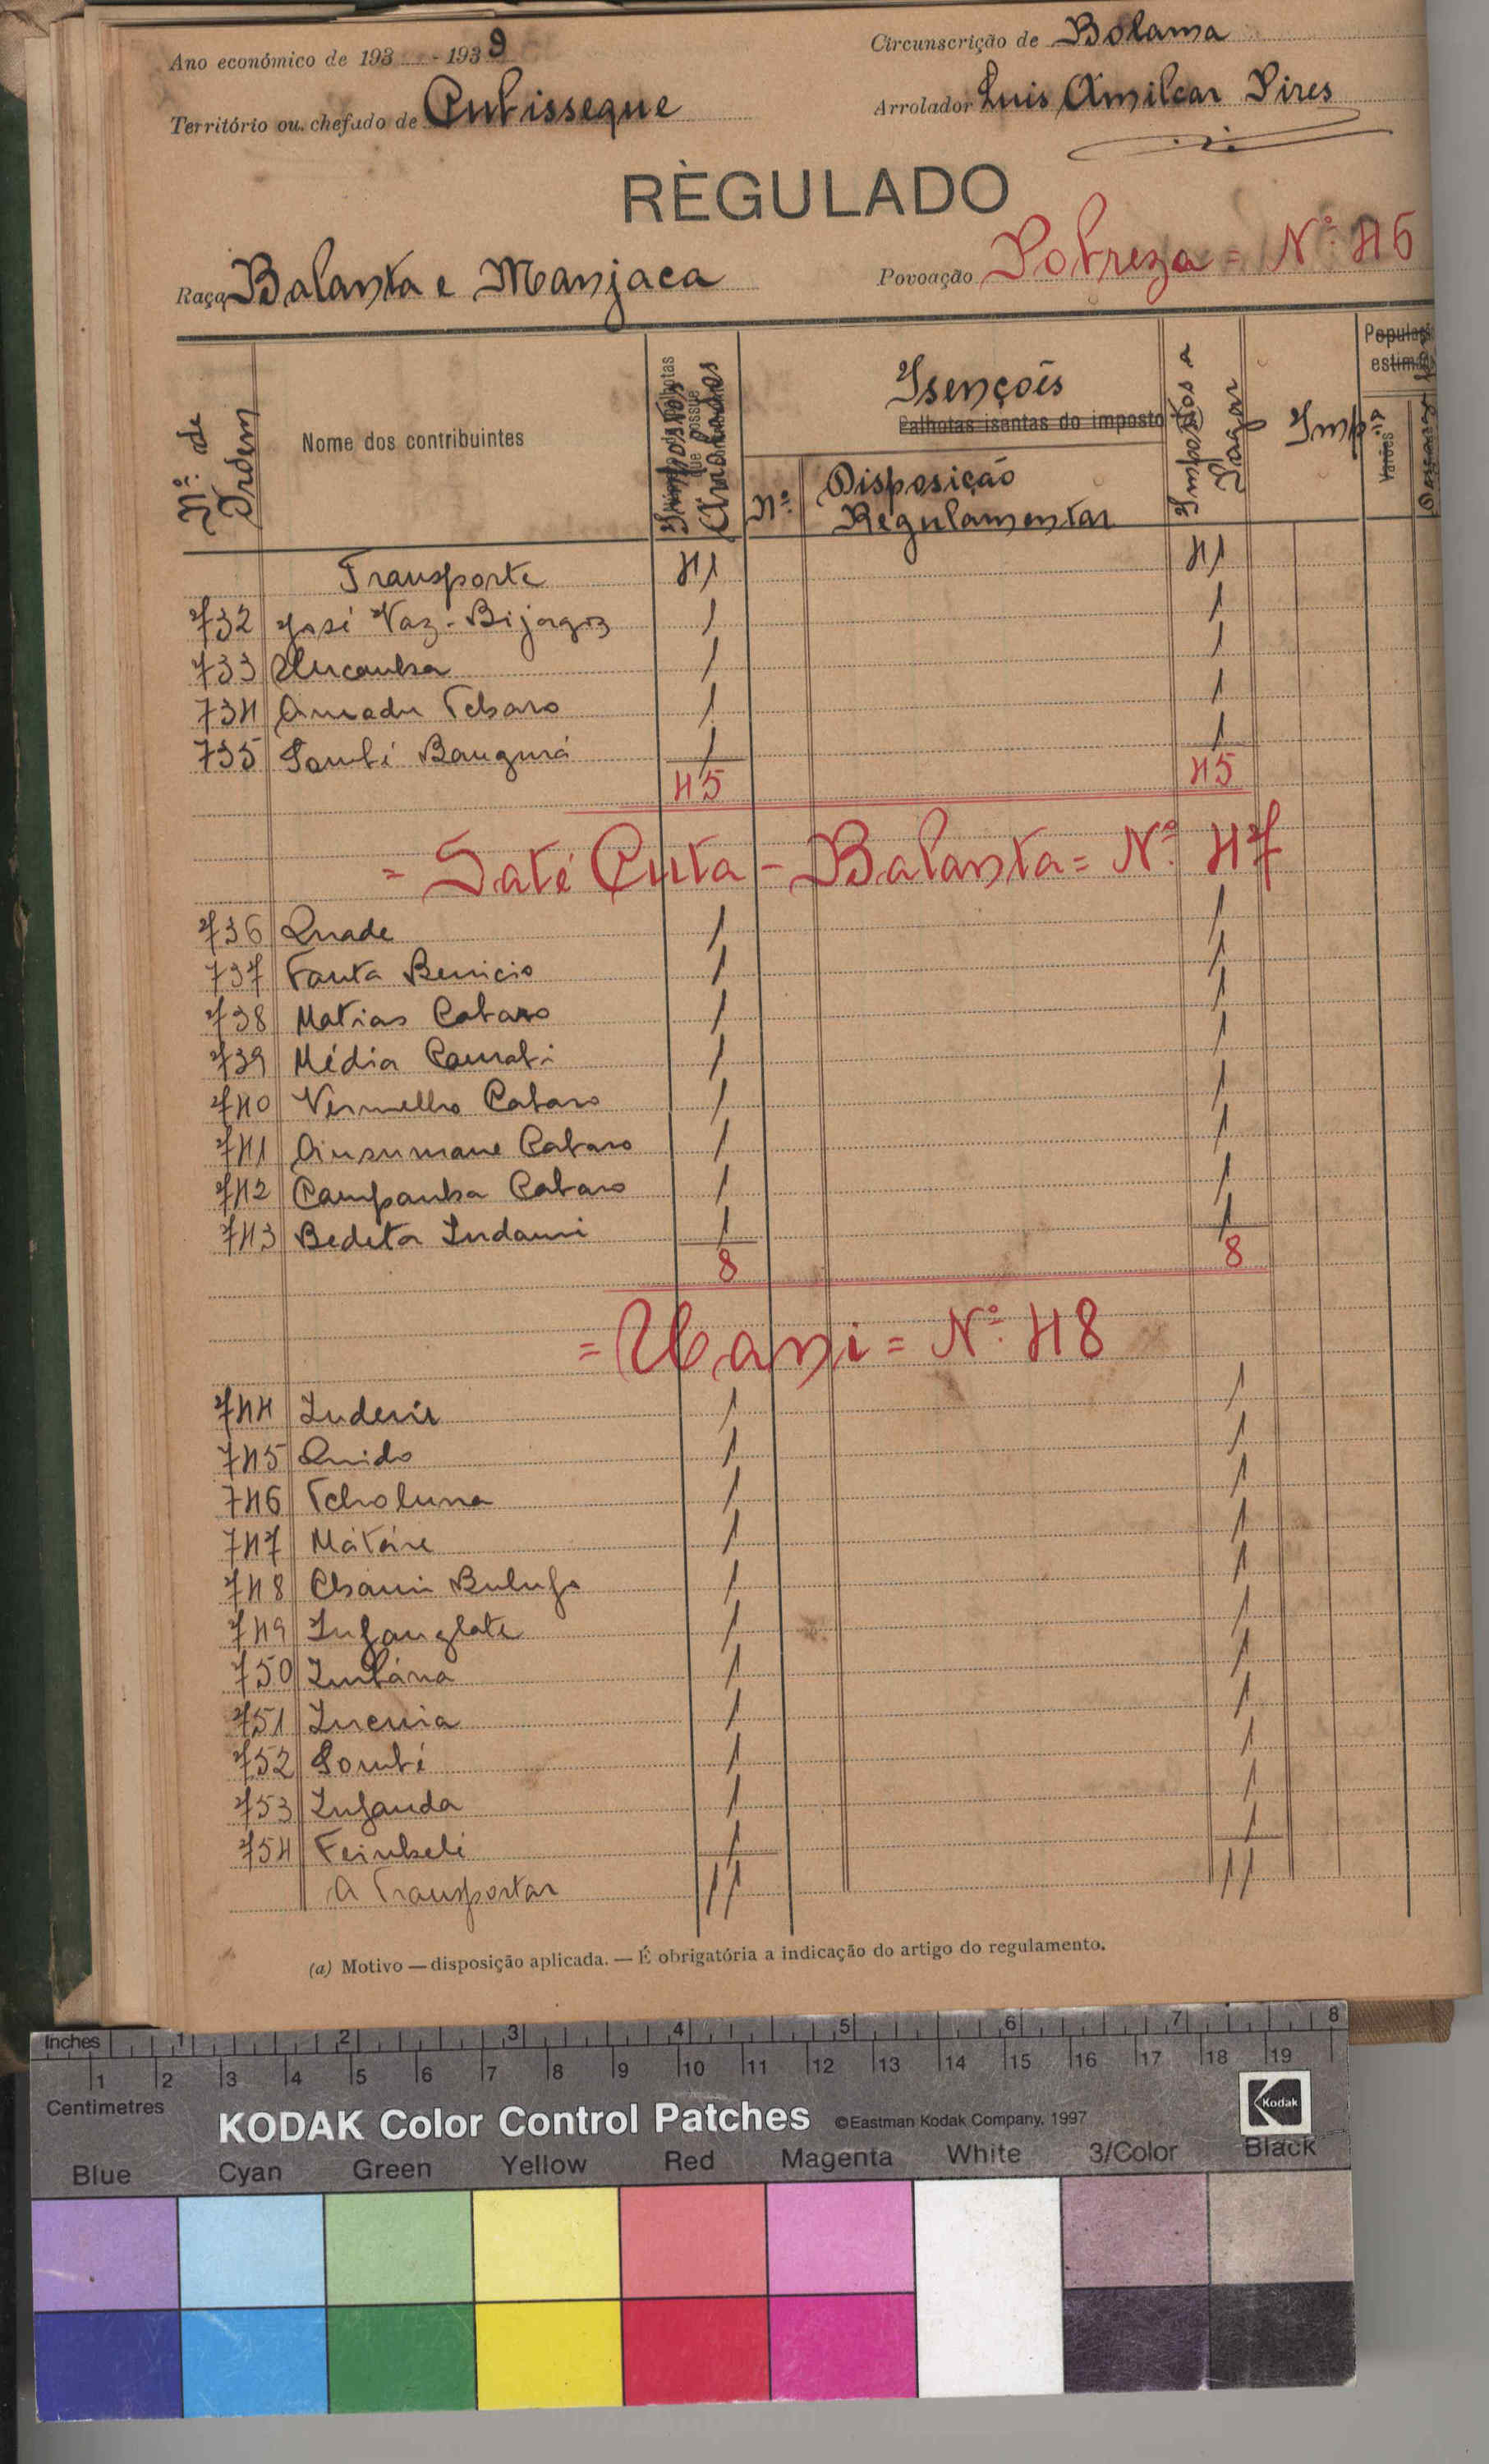 Ano económico de 193 - 1939
Circunscrição de Bolama
Território ou chefado de Cubisseque
Arrolador Luis Amilcar Pires
RÈGULADO
Raça Balanta e Manjaca
Povoação Pobreza = Nº 46
Nº de Ordem
Nome dos contribuintes
Impostos Arrolados
Isenções
Palhotas isentas do imposto
Nº
Disposição Regulamentar
Impostos a Pagar
Imp
Populaç
estima
Varões
Transporte 41 41
732 José Vaz - Bijagoz 1 1
733 1 1
734 Amadu 1 1
735 Sombi Bangurá 1 1
45 45
= Saté Cuta - Balanta = Nº 47
736 Quade 1 1
737 Fanta Benicio 1 1
738 Matias Cabaro 1 1
739 Média Camabi 1 1
740 Vermelho Cabaro 1 1
741 Ansumane Cabaro 1 1
742 Campanha Cabaro 1 1
743 Bedeta Indami 1 1
8 8
= Uani = Nº 48
744 1 1
745 Quido 1 1
746 Tcholuna 1 1
747 Mátáre 1 1
748 Bulufo 1 1
749 1 1
750 Imbána 1 1
751 1 1
752 Sombi 1 1
753 Infanda 1 1
754 1 1
A Transportar 11 11
(a) Motivo — disposição aplicada. — É obrigatória a indicação do artigo do regulamento.
Inches 1 2 3 4 5 6 7 8
1 2 3 4 5 6 7 8 9 10 11 12 13 14 15 16 17 18 19
Centimetres
KODAK Color Control Patches ©Eastman Kodak Company, 1997 Kodak
Blue Cyan Green Yellow Red Magenta White 3/Color Black